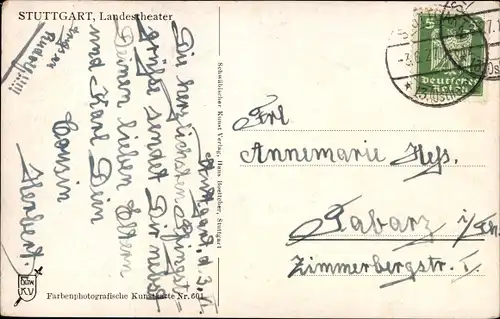 STUTTGART, Landestheater
Stuttgart, d. 3. VI.
Die herzlichsten Pfingst-
grüße sendet Dir nebst
Deinen lieben Eltern
und Karl Dein
Cousin
Herbert.
Schwäbischer Kunst Verlag, Hans Boettcher, Stuttgart
Farbenphotografische Kunstkarte Nr. 601
5
Deutsches
Reich
Frl
Annemarie Heß.
Tabarz i/Th
Zimmerbergstr. I.